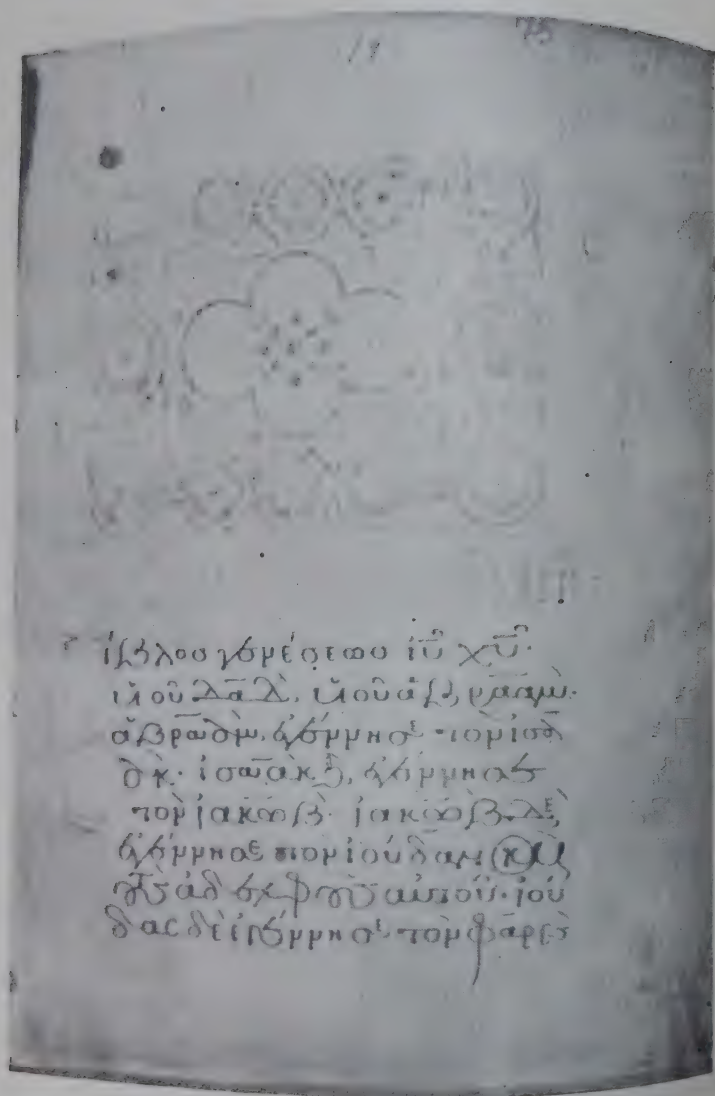 75
ίβλος γενέσεως ἰῦ χῦ·
υἱοῦ δᾱδ̄, υἱοῦ ἀβραὰμ·
ἀβραὰμ ἐγέννησε τὸν ἰσὰ
ὰκ· ἰσαὰκ δὲ, ἐγέννησε
τὸν ἰακὼβ· ἰακὼβ δὲ,
ἐγέννησε τὸν ἰούδαν κὰι
τοὺς ἀδελφοὺς αὐτοῦ· ἰού
δας δὲ ἐγέννησε τὸν φάρὲς